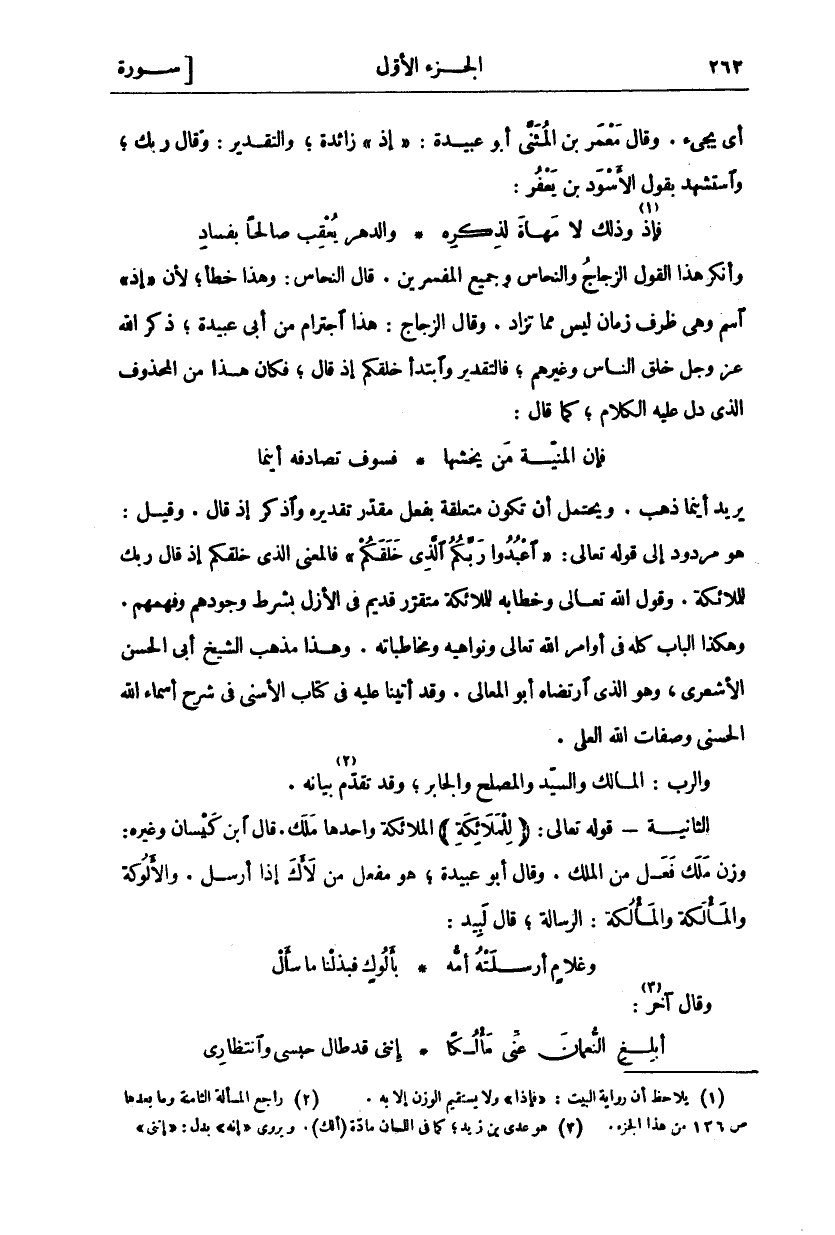 ٢٦٢ الجزء الأول [ سورة
أى يجىء . وقال مَعْمَر بن المُثَنَّى أبو عبيدة : « إذ » زائدة ؛ والتقدير : وقال ربك ؛
وٱستشهد بقول الأَسْوَد بن يَعْفُر :
فإذ (١) وذلك لا مَهاةَ لذِكرِه * والدهر يُعْقِب صالحًا بفسادِ
وأنكر هذا القول الزجاجُ والنحاس وجميع المفسرين . قال النحاس : وهذا خطأ؛ لأن «إذ»
ٱسم وهى ظرف زمان ليس مما تزاد . وقال الزجاج : هذا ٱجترام من أبى عبيدة ؛ ذكر الله
عز وجل خلق الناس وغيرهم ؛ فالتقدير وٱبتدأ خلقكم إذ قال ؛ فكان هذا من المحذوف
الذى دل عليه الكلام ؛ كما قال :
فإن المنيّة مَن يخشها * فسوف تصادفه أينما
يريد أينما ذهب . ويحتمل أن تكون متعلقة بفعل مقدّر تقديره وٱذكر إذ قال . وقيل :
هو مردود إلى قوله تعالى : « ٱعْبُدُوا رَبَّكُمُ ٱلَّذِى خَلَقَكُمْ » فالمعنى الذى خلقكم إذ قال ربك
للملائكة . وقول الله تعالى وخطابه لللائكة متقرّر قديم فى الأزل بشرط وجودهم وفهمهم .
وهكذا الباب كله فى أوامر الله تعالى ونواهيه ومخاطباته . وهذا مذهب الشيخ أبى الحسن
الأشعرى ، وهو الذى ٱرتضاه أبو المعالى . وقد أتينا عليه فى كتاب الأسنى فى شرح أسماء الله
الحسنى وصفات الله العلى .
والرب : المالك والسيّد والمصلح والجابر ؛ وقد تقدّم (٢) بيانه .
الثانية — قوله تعالى : ﴿ لِلْمَلَائِكَةِ ﴾ الملائكة واحدها مَلَك. قال ٱبن كَيْسان وغيره:
وزن مَلَك فَعَل من الملك . وقال أبو عبيدة ؛ هو مفعل من لَأَكَ إذا أرسل . والأَلُوكة
والمَأْلَكة والمَأْلُكة : الرسالة ؛ قال لَبِيد :
وغلامٍ أرسلَتْهُ أمُّه * بأَلُوكٍ فبذلْنا ما سأَلْ
وقال آخر (٣) :
أبلِغِ النُّعمانَ عنّى مَأْلُكًا * إننى قد طال حبسى وٱنتظارى
(١) يلاحظ أن رواية البيت : «فإذا» ولا يستقيم الوزن إلا به . (٢) راجع المسألة الثامنة وما بعدها
ص ١٣٦ من هذا الجزء. (٣) هو عدى بن زيد؛ كما فى اللسان مادّة (ألك). ويروى «إنه» بدل : «إننى»